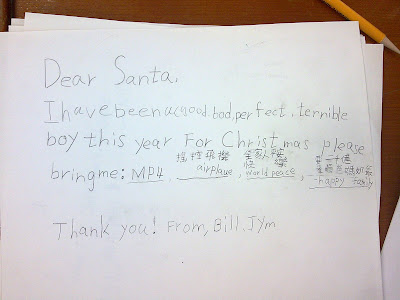 Dear Santa,
I have been a good, bad, perfect, terrible
boy this year For Christmas please
遙控飛機
bring me: MP4, airplane, world peace, happy family
Thank you! From, Bill. Jym